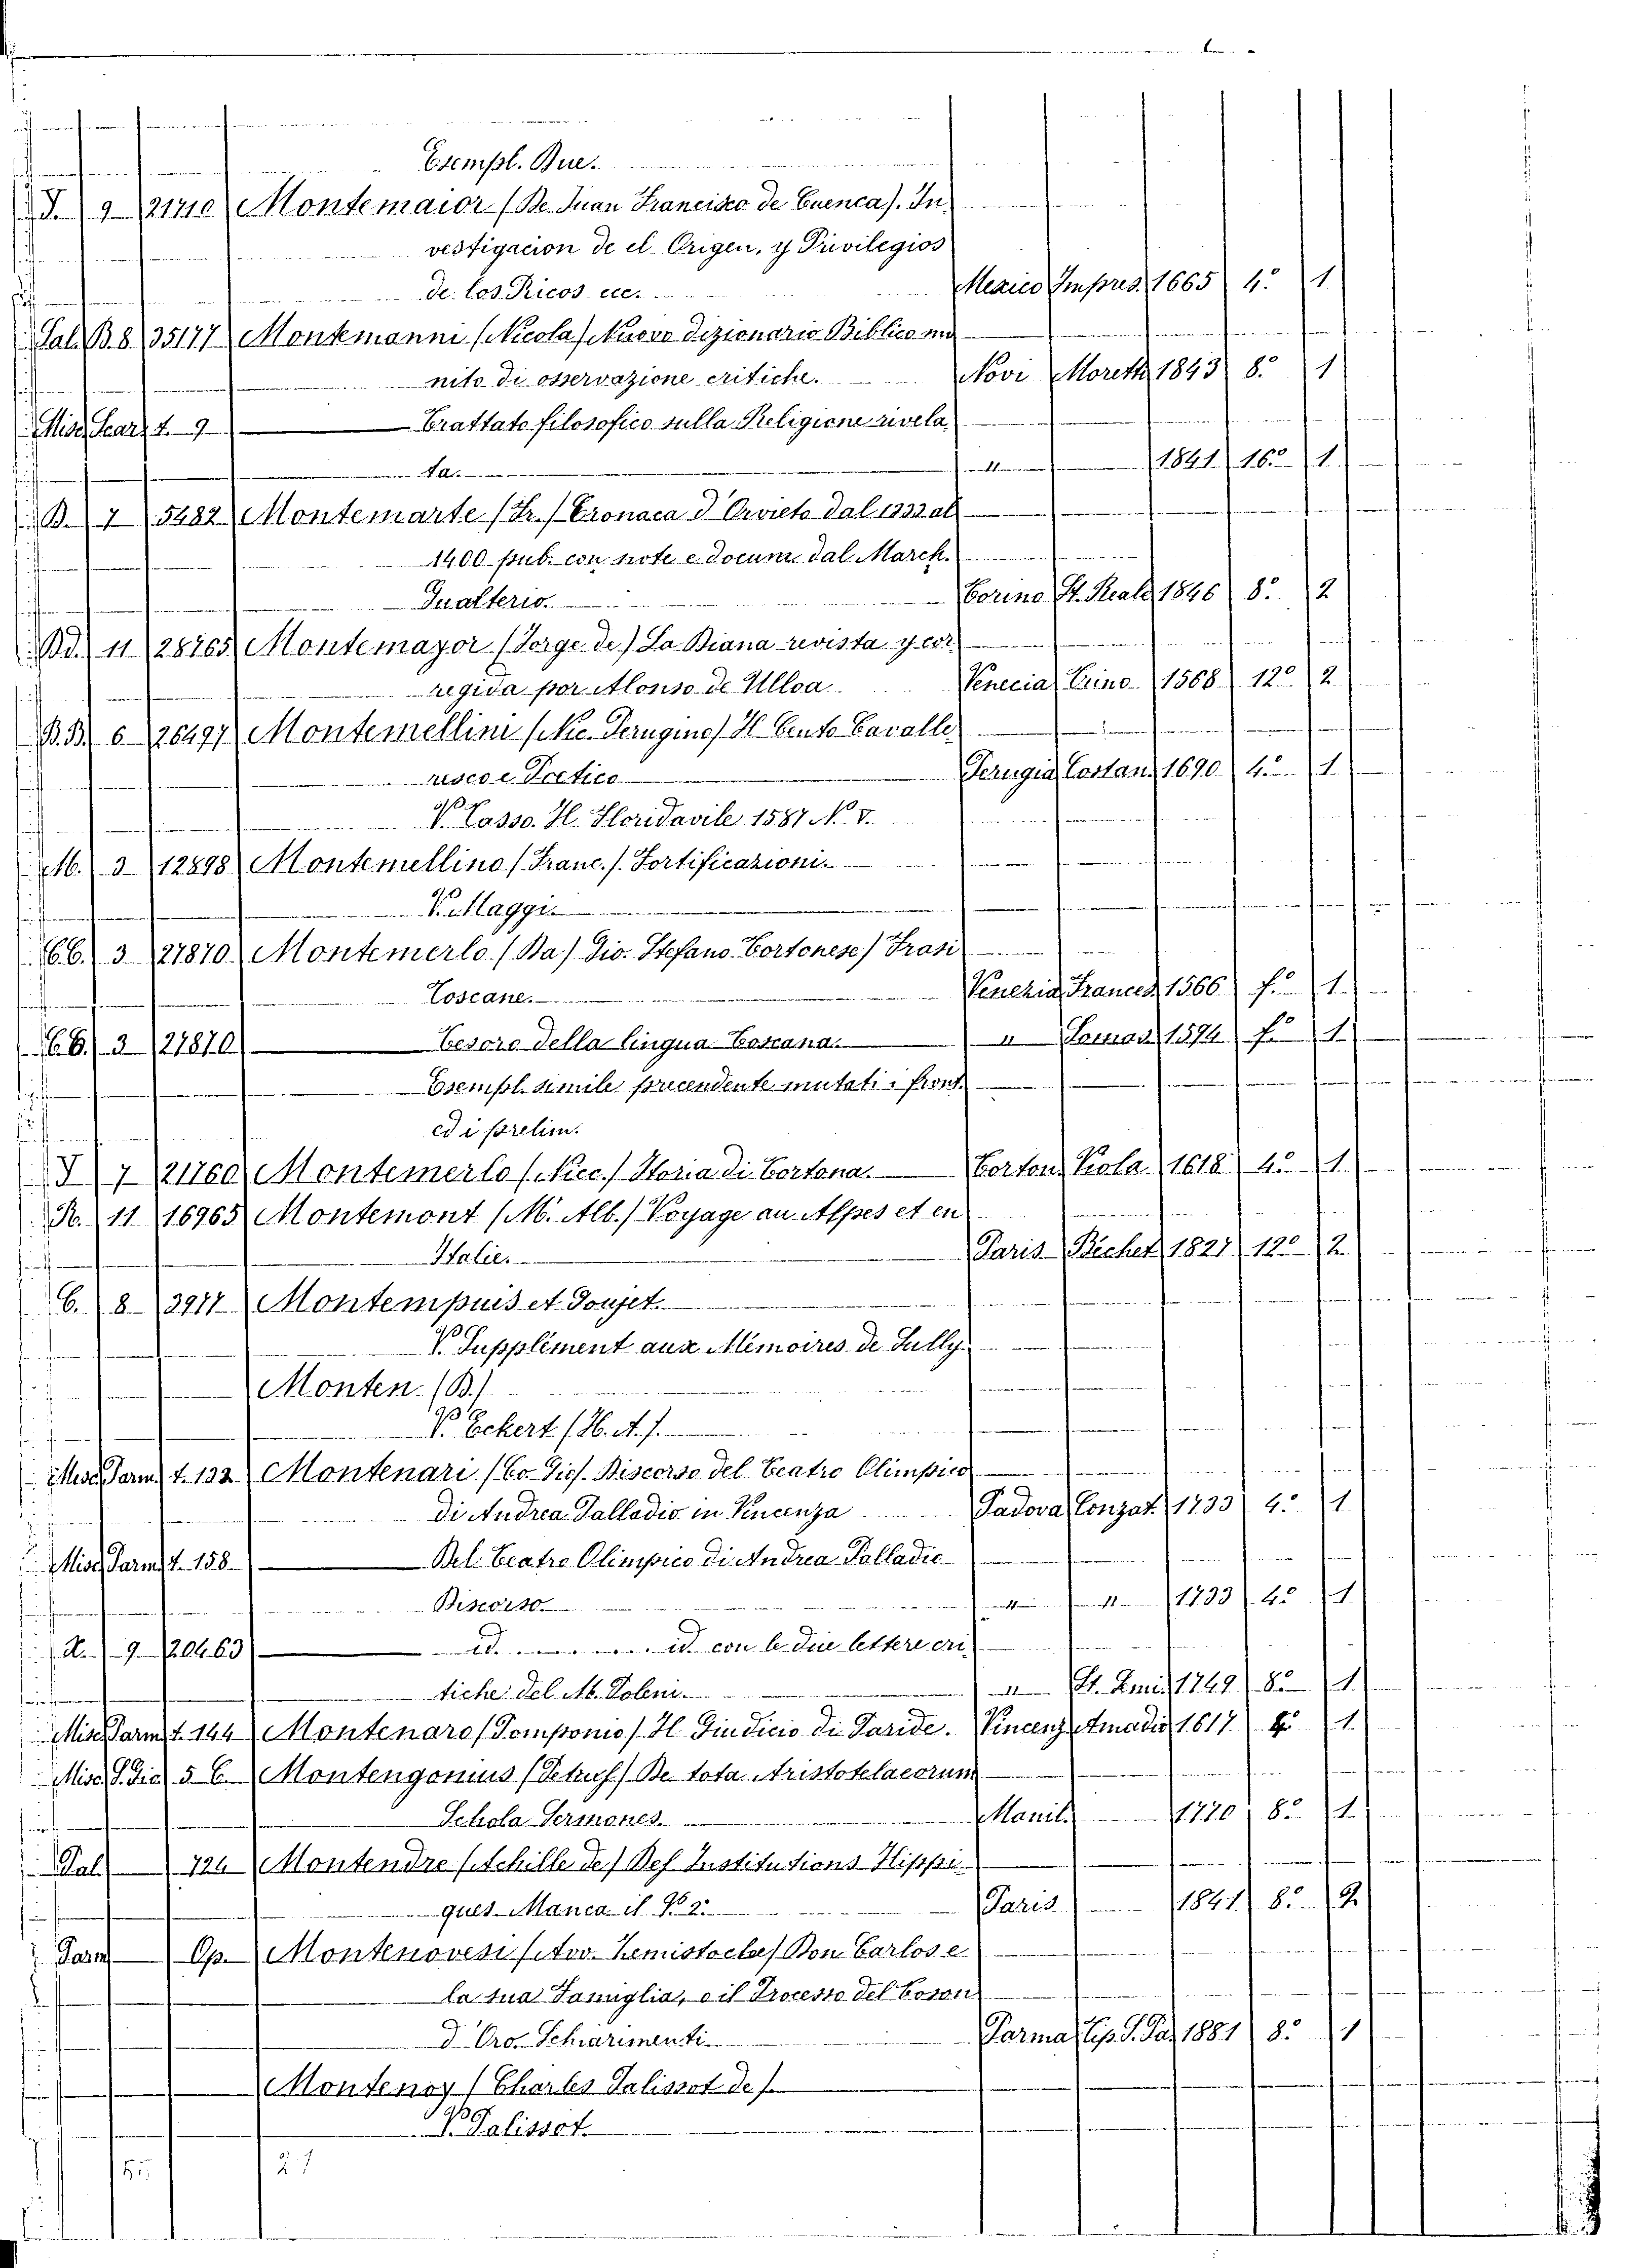 Esempl. Due.
T. 9 21710 Montemaior (De Juan Francisco de Cuenca). In
vestigacion de el Origen, y Privilegios
de los Ricos ecc. Mexico Impres. 1665 4.° 1
Sal. B. 8 35177 Montemanni (Nicola) Nuovo Dizionario Biblico mu
nito di osservazione critiche. Novi Moretti 1843 8.° 1
Misc. Scarz t. 9 Trattato filosofico sulla Religione rivela
ta. " 1841 16.° 1
B. 7 5482 Montemarte (Fr.) Cronaca d'Orvieto dal 1333 al
1400 pub. con note e docum. dal March.
Gualterio. Torino St. Reale 1846 8.° 2
Bd. 11 28765 Montemayor (Jorge de) La Diana revista y cor
regida por Alonso de Ulloa. Venecia Trino 1568 12.° 2
B.B. 6 26497 Montemellini (Nic. Perugino) Il Cento Cavalle
resco e Poetico Perugia Costan. 1690 4.° 1
V. Tasso. Il Floridavile 1587 N. V.
M. 3 12898 Montemellino (Franc.) Fortificazioni.
V. Maggi.
CC. 3 27870 Montemerlo (Da) Gio. Stefano Tortonese) Frasi
Toscane. Venezia Frances. 1566 f.° 1
CC. 3 27870 Tesoro della lingua Toscana. " 1594 f.° 1
Esempl. simile precendente mutati i front.
ed i prelim.
T 7 21760 Montemerlo (Nicc.) Storia di Tortona. Torton. Viola 1618 4.° 1
R. 11 16965 Montemont (M. Alb.) Voyage au Alpes et en
Italie. Paris Bechet 1827 12.° 2
C. 8 3977 Montempuis et Goujet.
V. Supplément aux Mémoires de Sully.
Monten (D.)
V. Eckert (H. A.).
Misc. Parm. t. 132 Montenari (Co. Gio). Discorso del Teatro Olimpico
di Andrea Palladio in Vincenza Padova Conzat. 1733 4.° 1
Misc. Parm. t. 158 Del Teatro Olimpico di Andrea Palladio
Discorso " " 1733 4.° 1
9 20463 id. id con le due lettere cri
tiche del M. Poleni. " St. Semi. 1749 8.° 1
Misc. Parm. t. 144 Montenaro (Pomponio) Il Giudicio di Paride. Vincenz. Amadio 1617 1
Misc. 5 6 Montengonius De tota Aristotelaeorum
Schola Sermones. Manil. 1770 8.° 1
Pal 726 Montendre (Achille de) Des Institutions Hippi
ques Manca il V. 2.° Paris 1841 8.° 2
Parm Op. Montenovesi (Avv. Temistocle) Don Carlos e
la sua Famiglia, e il Processo del Toson
d'Oro Schiarimenti Parma Tip. S. Pa. 1881 8.° 1
Montenoy (Charles Palissot de).
V. Palissot
27